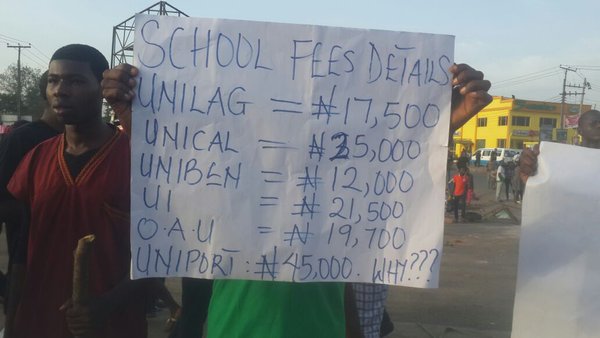 SCHOOL FEES DETAILS
UNILAG = ₦17,500
UNICAL = ₦35,000
UNIBEN = ₦12,000
UI = ₦21,500
O.A.U = ₦19,700
UNIPORT: ₦45,000. WHY???